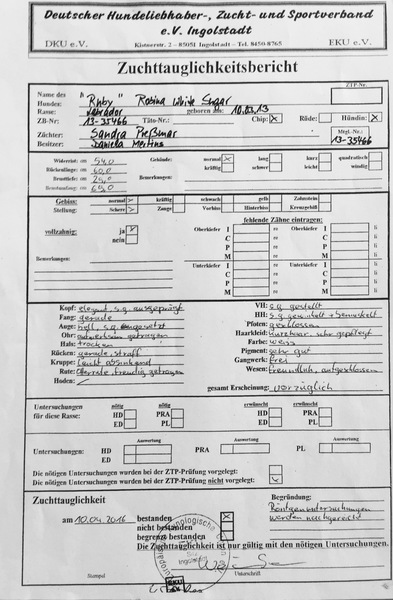 Deutscher Hundeliebhaber-, Zucht- und Sportverband
e.V. Ingolstadt
DKU e.V. Kistnerstr. 2 – 85051 Ingolstadt – Tel. 8450-8765 EKU e.V.
Zuchttauglichkeitsbericht
ZTP-Nr.
Name des
Hundes: Ruby Robina White Sugar
Rasse: Labrador geboren am: 10.03.13
ZB-Nr: 13-35466 Täto-Nr.: Chip: x Rüde: Hündin: x
Züchter: Sandra Preßmar Mtgl.-Nr.:
Besitzer: Daniela Mertins 13-35466
Widerrist: cm 54,0 Gebäude: normal x lang kurz quadratisch
Rückenlänge: cm 60,0 kräftig schwer leicht windig
Brusttiefe: cm 25,0 Bemerkungen:
Brustumfang: cm
Gebiss: normal x kräftig schwach gelb Zahnstein
Stellung: Schere x Zange Vorbiss Hinterbiss Kreuzgebiß
fehlende Zähne eintragen:
vollzahnig: ja x Oberkiefer I re Oberkiefer I li
nein C re C li
P re P li
Bemerkungen: M re M li
Unterkiefer I re Unterkiefer I li
C re C li
P re P li
M re M li
Kopf: elegant, s.g. ausgeprägt VH: s.g. gestellt
Fang: gerade HH: s.g. gewinkelt + bemuskelt
Auge: hell, s.g. eingesetzt Pfoten: geschlossen
Ohr: getragen Haarkleid: kurzhaar, sehr gepflegt
Hals: trocken Farbe: weiss
Rücken: gerade, straff Pigment: sehr gut
Kruppe: leicht abfallend Gangwerk: frei
Rute: freudig getragen Wesen: Freundlich, aufgeschlossen
Hoden: /
gesamt Erscheinung: vorzüglich
Untersuchungen nötig nötig erwünscht erwünscht
für diese Rasse: HD PRA HD PRA
ED PL ED PL
Auswertung Auswertung Auswertung
Untersuchungen: HD PRA PL
ED
Die nötigen Untersuchungen wurden bei der ZTP-Prüfung vorgelegt:
Die nötigen Untersuchungen wurden bei der ZTP-Prüfung nicht vorgelegt:
Zuchttauglichkeit Begründung:
am 10.04.2016 bestanden x Röntgenuntersuchungen
nicht bestanden werden nachgereicht
begrenzt bestanden
Die Zuchttauglichkeit ist nur gültig mit den nötigen Untersuchungen.
Ingolstadt
Stempel Unterschrift